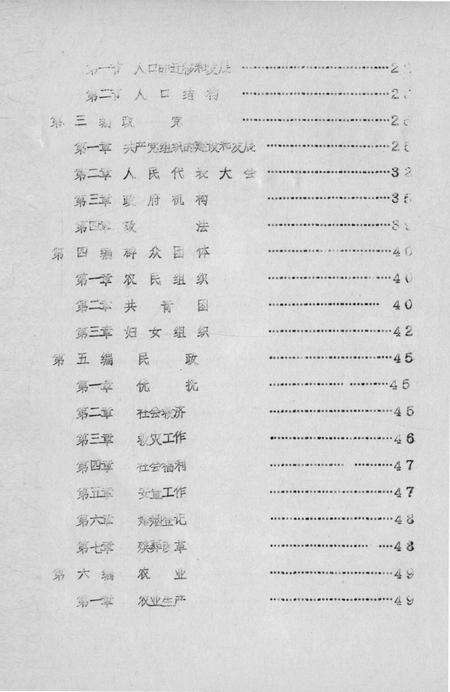 第一节 人口的迁移和发展
第二节 人口结构
第三编 政党 28
第一章 共产党组织的建设和发展 28
第二章 人民代表大会 32
第三章 政府机构 35
第四章 政法
第四编 群众团体 40
第一章 农民组织 40
第二章 共青团 40
第三章 妇女组织 42
第五编 民政 45
第一章 优抚 45
第二章 社会救济 45
第三章 救灾工作 46
第四章 社会福利 47
第五章 安置工作 47
第六章 婚姻登记 48
第七章 殡葬改革 48
第六编 农业 49
第一章 农业生产 49